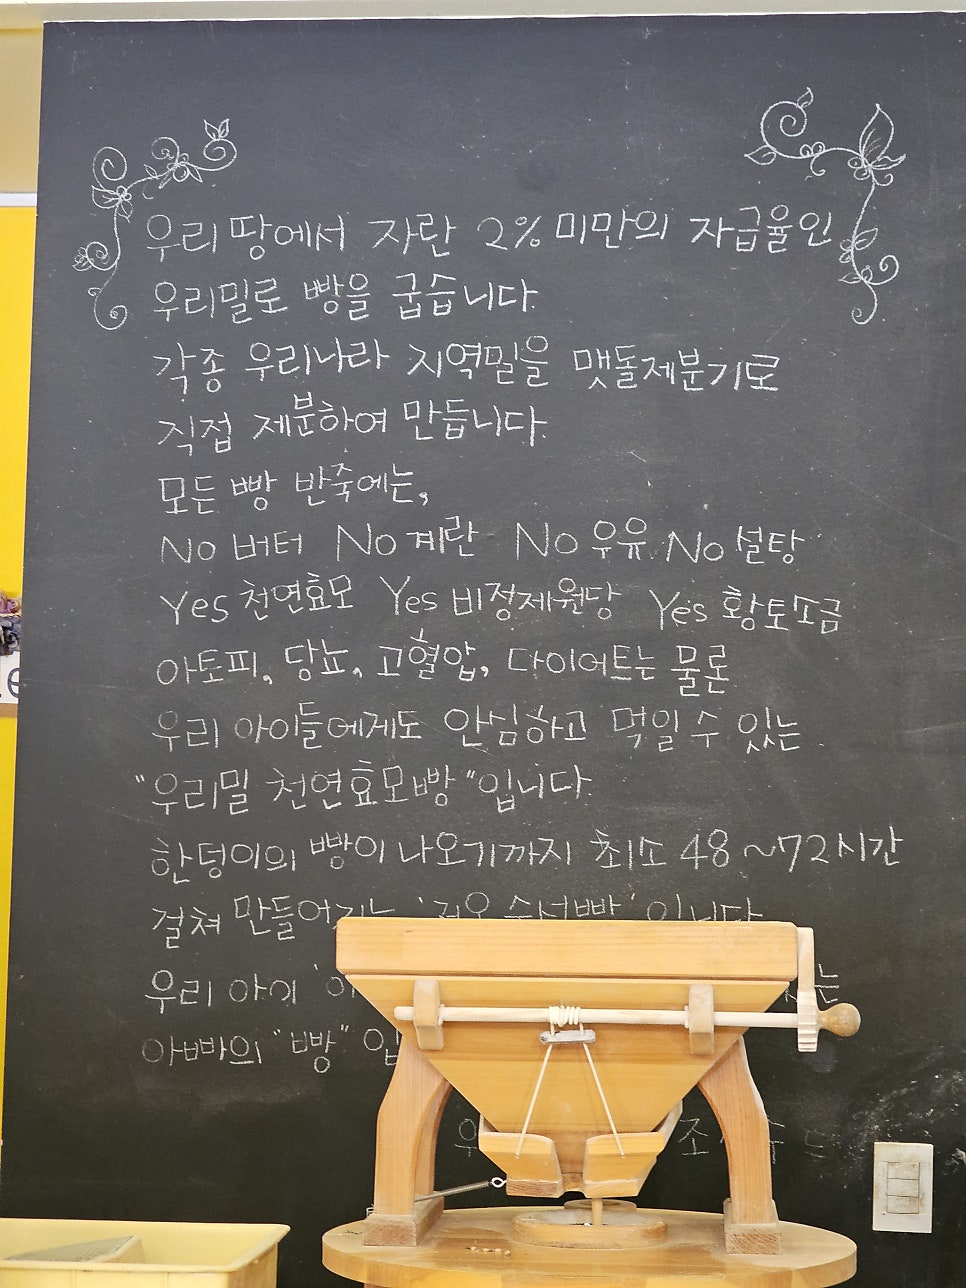 우리 땅에서 자란 2% 미만의 자급율인
우리밀로 빵을 굽습니다.
각종 우리나라 지역밀을 맷돌제분기로
직접 제분하여 만듭니다.
모든 빵 반죽에는,
No 버터 No 계란 No 우유 No 설탕
Yes 천연효모 Yes 비정제원당 Yes 황토소금
아토피, 당뇨, 고혈압, 다이어트는 물론
우리 아이들에게도 안심하고 먹일 수 있는
"우리밀 천연효모빵"입니다.
한덩이의 빵이 나오기까지 최소 48~72시간
걸쳐 만들어지는 입니다
우리 아이
아빠의 "빵"